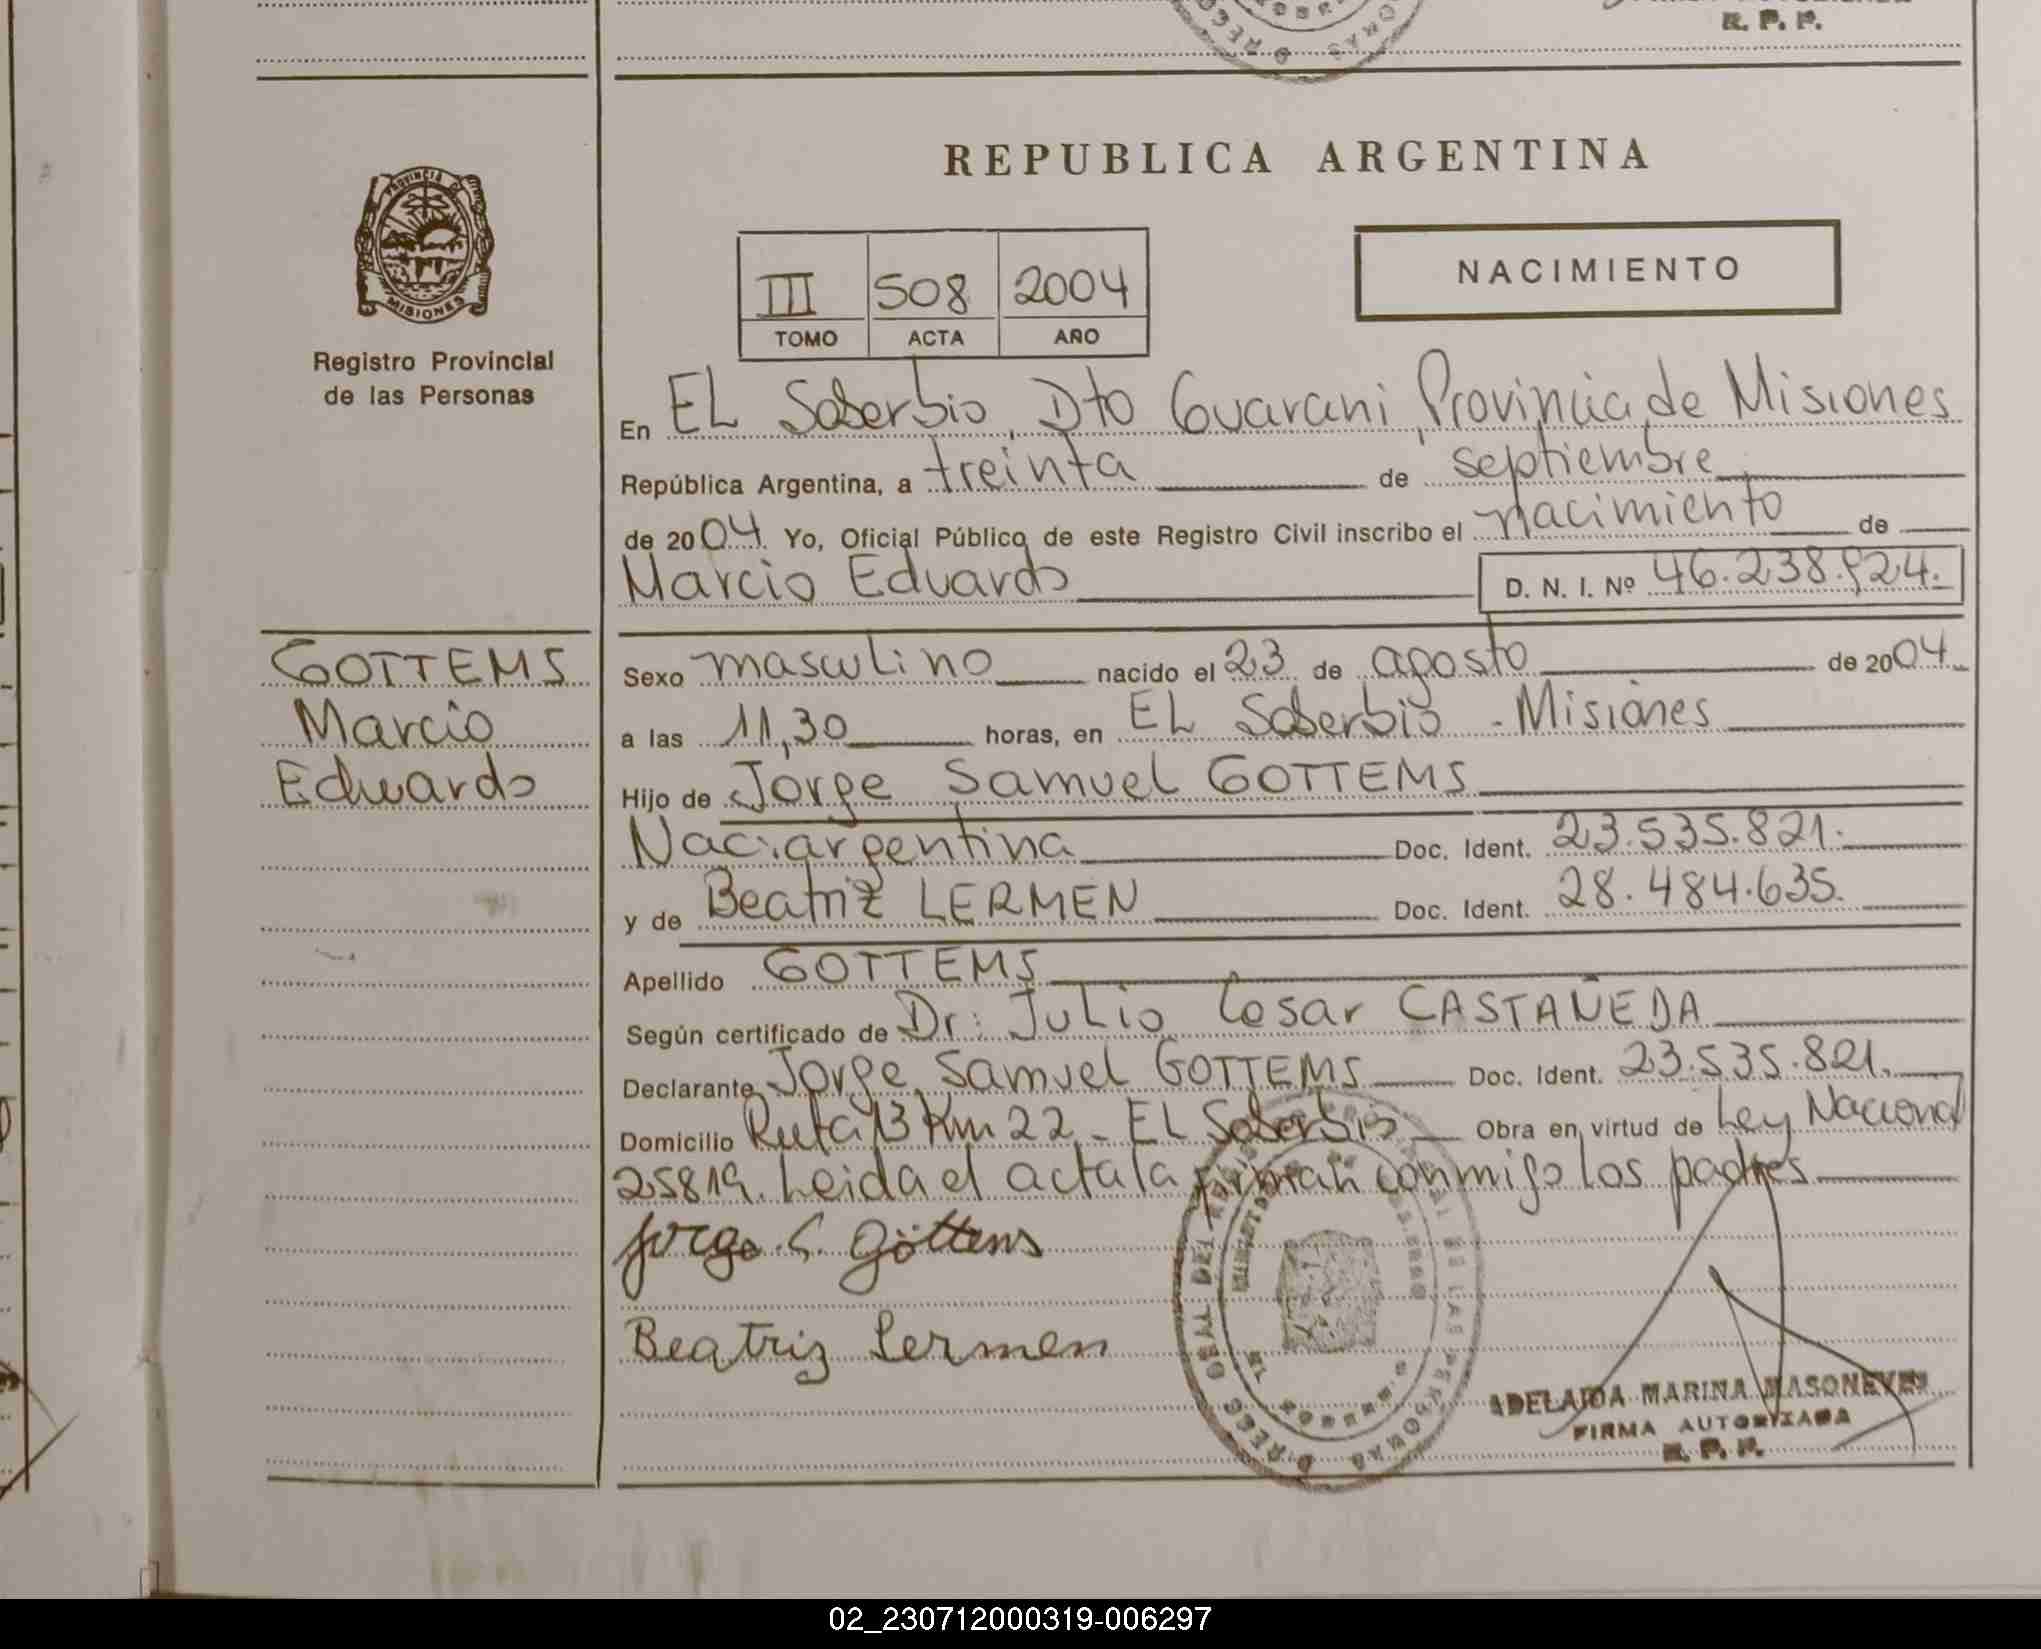 R. P. P.
REPUBLICA ARGENTINA
PROVINCIA DE
MISIONES
Registro Provincial
de las Personas
III 508 2004
TOMO ACTA AÑO
NACIMIENTO
En EL Soberbio, Dto Guarani, Provincia de Misiones
República Argentina, a treinta de septiembre
de 2004. Yo, Oficial Público de este Registro Civil inscribo el nacimiento de
Marcio Eduardo D. N. I. Nº 46.238.924.
GOTTEMS
Marcio
Eduardo
Sexo masculino nacido el 23 de agosto de 2004.
a las 11,30 horas, en EL Soberbio - Misiones
Hijo de Jorge Samuel GOTTEMS
Nac: argentina Doc. Ident. 23.535.821.
y de Beatriz LERMEN Doc. Ident. 28.484.635.
Apellido GOTTEMS
Según certificado de Dr: Julio Cesar CASTAÑEDA
Declarante Jorge Samuel GOTTEMS Doc. Ident. 23.535.821.
Domicilio Ruta 13 Km 22 - EL Soberbio Obra en virtud de Ley Nacional
25819. Leida el acta la firman conmigo los padres
Jorge S. Göttems
Beatriz Lermen
ADELAIDA MARINA
FIRMA AUTORIZADA
R. P. P.
02_230712000319-006297